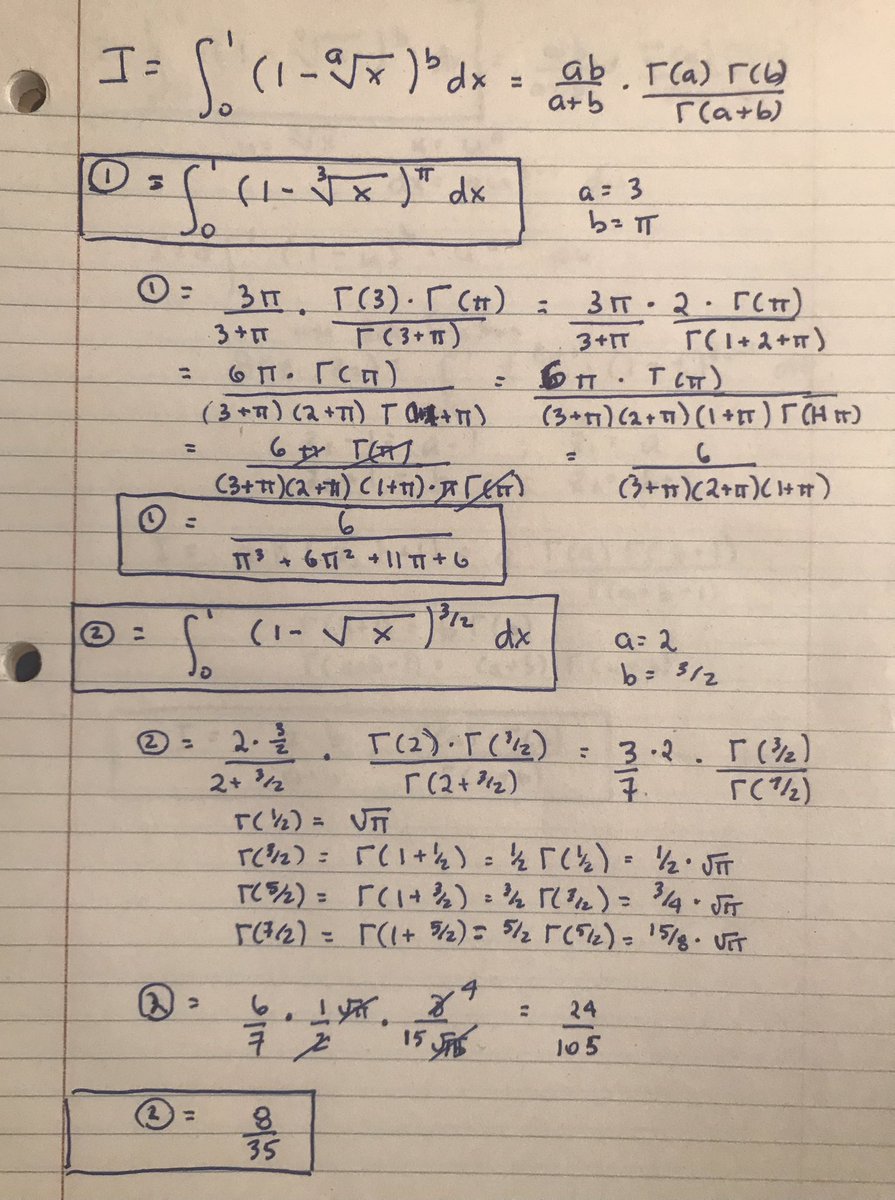 I = ∫₀¹ (1 - ᵃ√x)ᵇ dx = ab/(a+b) · Γ(a) Γ(b)/Γ(a+b)
① = ∫₀¹ (1 - ³√x)^π dx a = 3
b = π
① = 3π/(3+π) · Γ(3)·Γ(π)/Γ(3+π) = 3π/(3+π) · 2·Γ(π)/Γ(1+2+π)
= 6π·Γ(π)/((3+π)(2+π) Γ(+π)) = 6π·Γ(π)/((3+π)(2+π)(1+π) Γ(1+π))
= 6π Γ(π)/((3+π)(2+π)(1+π)·πΓ(π)) = 6/((3+π)(2+π)(1+π))
① = 6/(π³ + 6π² + 11π + 6)
② = ∫₀¹ (1 - √x)^(3/2) dx a = 2
b = 3/2
② = (2·3/2)/(2+3/2) · Γ(2)·Γ(3/2)/Γ(2+3/2) = 3/7 · 2 · Γ(3/2)/Γ(7/2)
Γ(1/2) = √π
Γ(3/2) = Γ(1+1/2) = 1/2 Γ(1/2) = 1/2 · √π
Γ(5/2) = Γ(1+3/2) = 3/2 Γ(3/2) = 3/4 · √π
Γ(7/2) = Γ(1+5/2) = 5/2 Γ(5/2) = 15/8 · √π
② = 6/7 · 1/2 √π · 8/(15√π) 4 = 24/105
② = 8/35